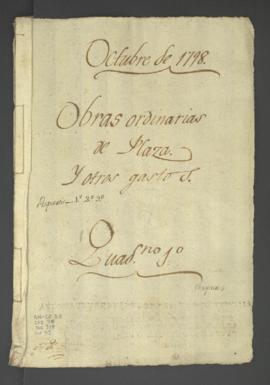 Octubre de 1798.
Obras ordinarias
de Plaza.
Y otros gastos.
1º 2º 3º
Quad.no 1º